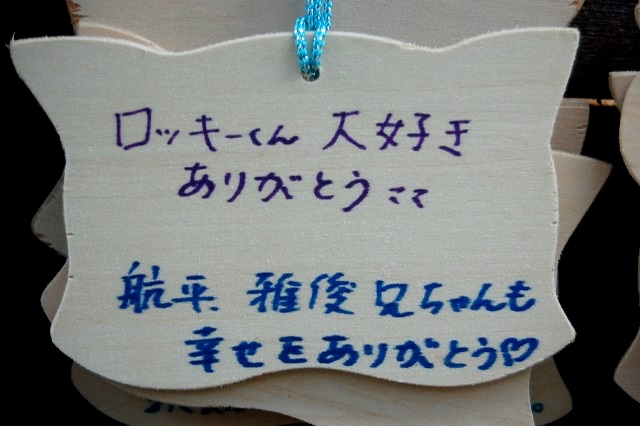 ロッキーくん 大好き
ありがとう ココ
航平 雅俊 兄ちゃんも
幸せをありがとう♡